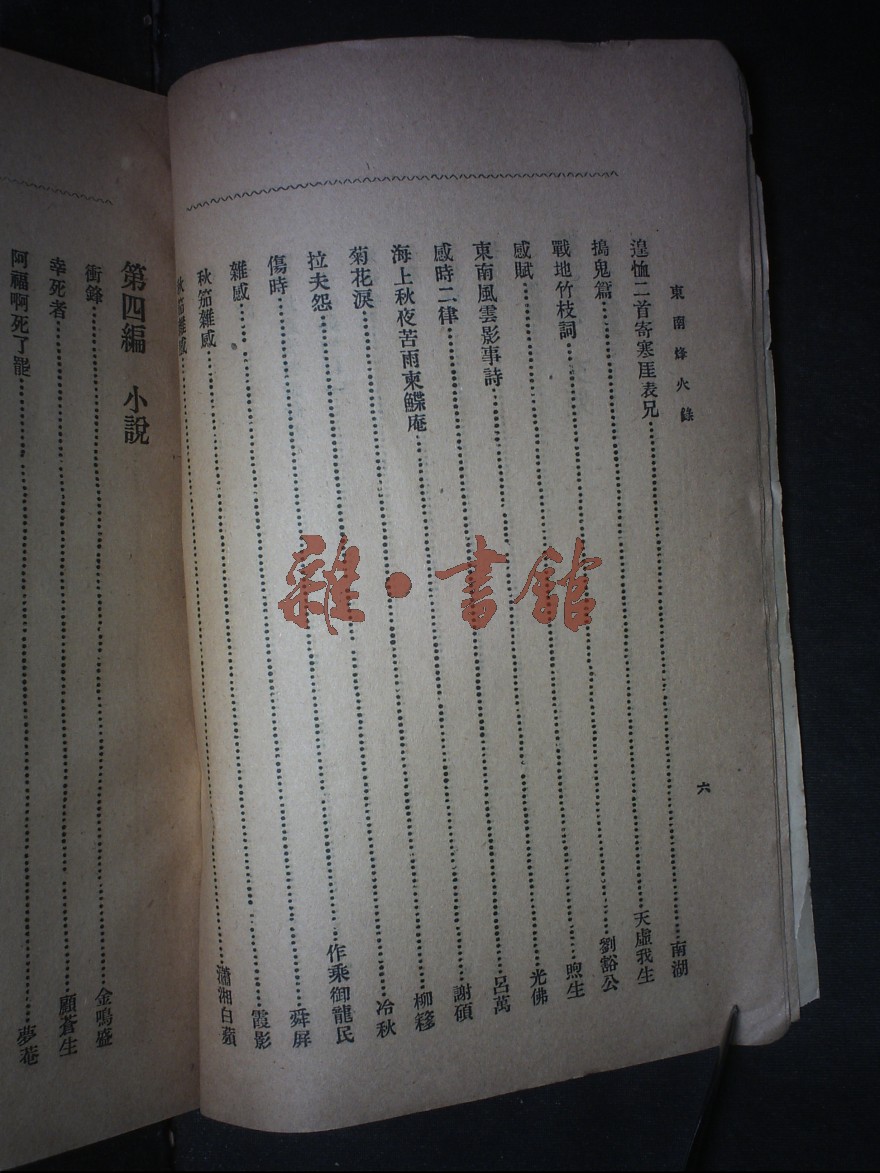 東南烽火錄
六
遑恤二首寄寒厓表兄……南湖
搗鬼篇……天虛我生
戰地竹枝詞……劉豁公
感賦……煦生
東南風雲影事詩……光佛
感時二律……呂萬
海上秋夜苦雨柬鰈庵……謝碩
菊花淚……柳簃
拉夫怨……冷秋
傷時……作乘御龍民
雜感……舜屏
秋笳雜感……霞影
秋笳雜感……瀟湘白蘋
第四編 小說
衝鋒……金鳴盛
幸死者……顧蒼生
阿福啊死了罷……夢菴
雜·書館